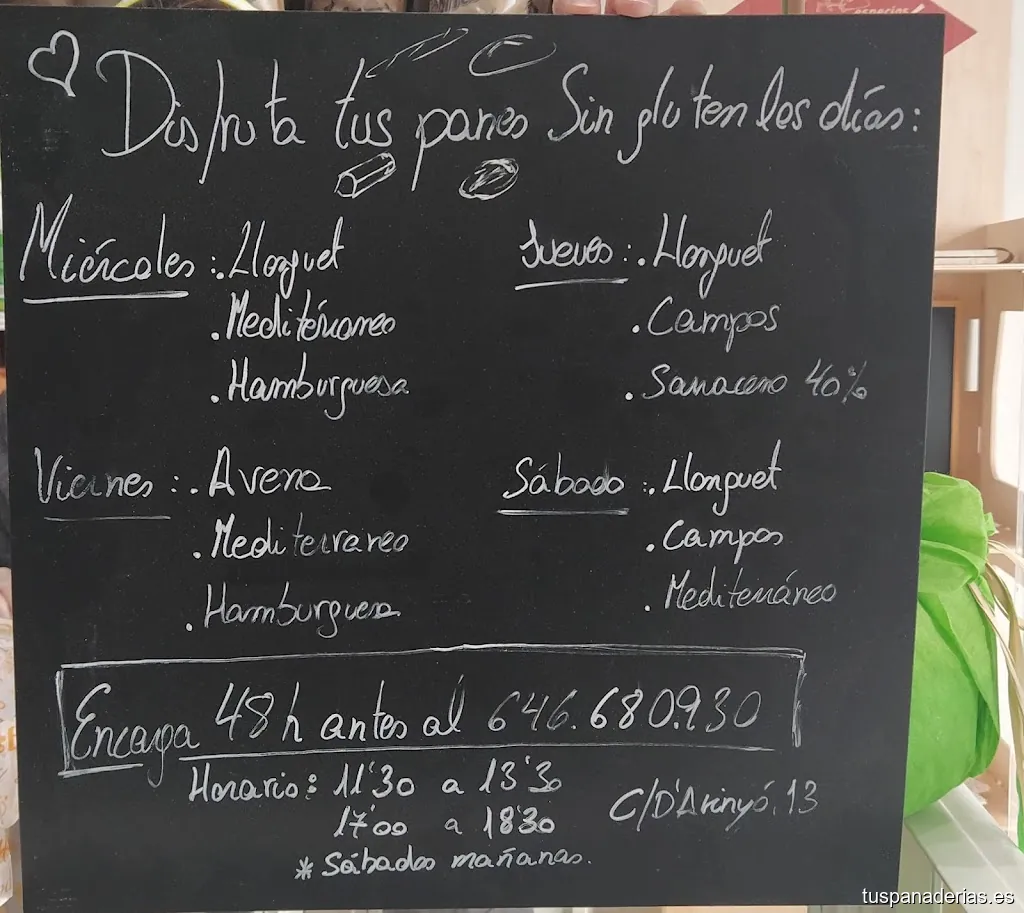 Disfruta tus panes Sin gluten los días:
Miércoles: . Llonguet
. Mediterráneo
. Hamburguesa
Jueves: . Llonguet
. Campos
. Sarraceno 40%
Viernes: . Avena
. Mediterraneo
. Hamburguesa
Sábado: . Llonguet
. Campos
. Mediterráneo
Encarga 48h antes al 646.680.930
Horario: 11'30 a 13'30
17'00 a 18'30
* Sábados mañanas.
C/D'Avinyó, 13
tuspanaderias.es